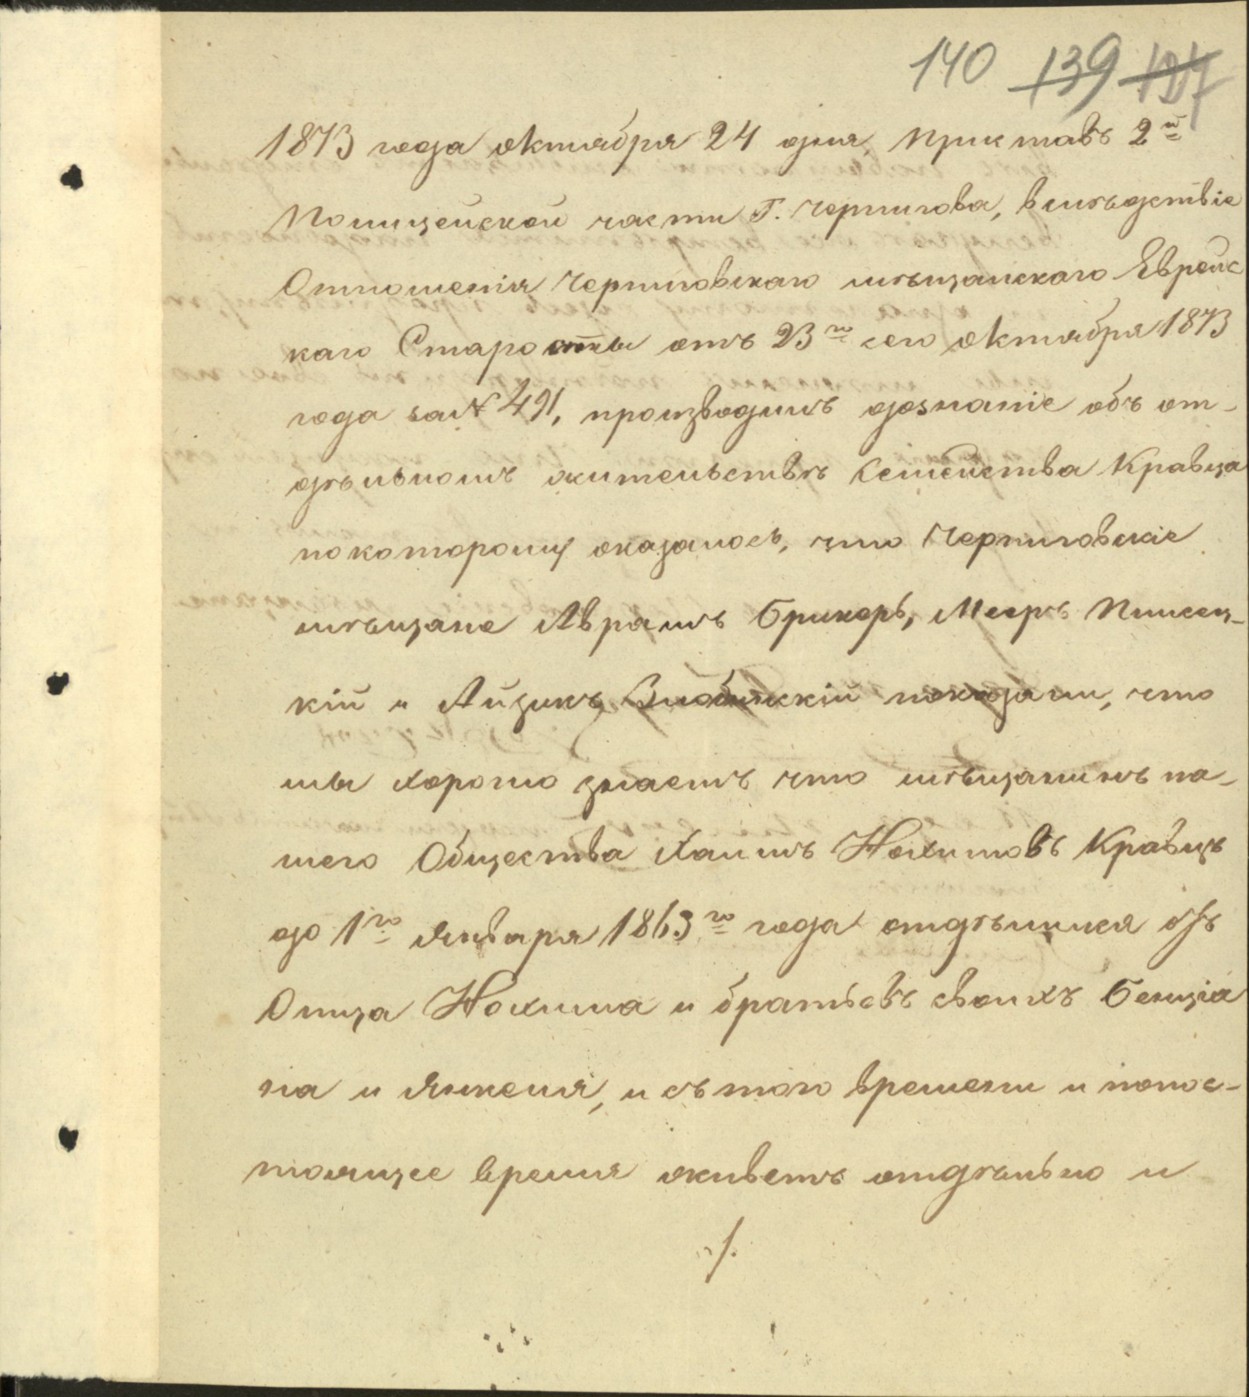 140 139 127
1873 года октября 24 дня, Приставъ 2й
Полицейской части Г. Чернигова, вслѣдствіе
Отношенія Черниговскаго мѣщанскаго Еврейс
каго Старосты отъ 23го сего октября 1873
года за № 491, производилъ дознаніе объ от-
дѣльномъ жительствѣ Семейства Кравца
по которому оказалось, что Черниговскіе
мѣщане Аврамъ Брикеръ, Мееръ Плисец-
кій и Айзикъ показали, что
мы хорошо знаемъ что мѣщанинъ на-
шего Общества Хаимъ Нохимовъ Кравцъ
до 1го Января 1863го года отдѣлился отъ
Отца Нохима и братьевъ своихъ Бенціа
на и Янкеля, и съ того времени и по нас-
тоящее время живетъ отдѣльно и
./.